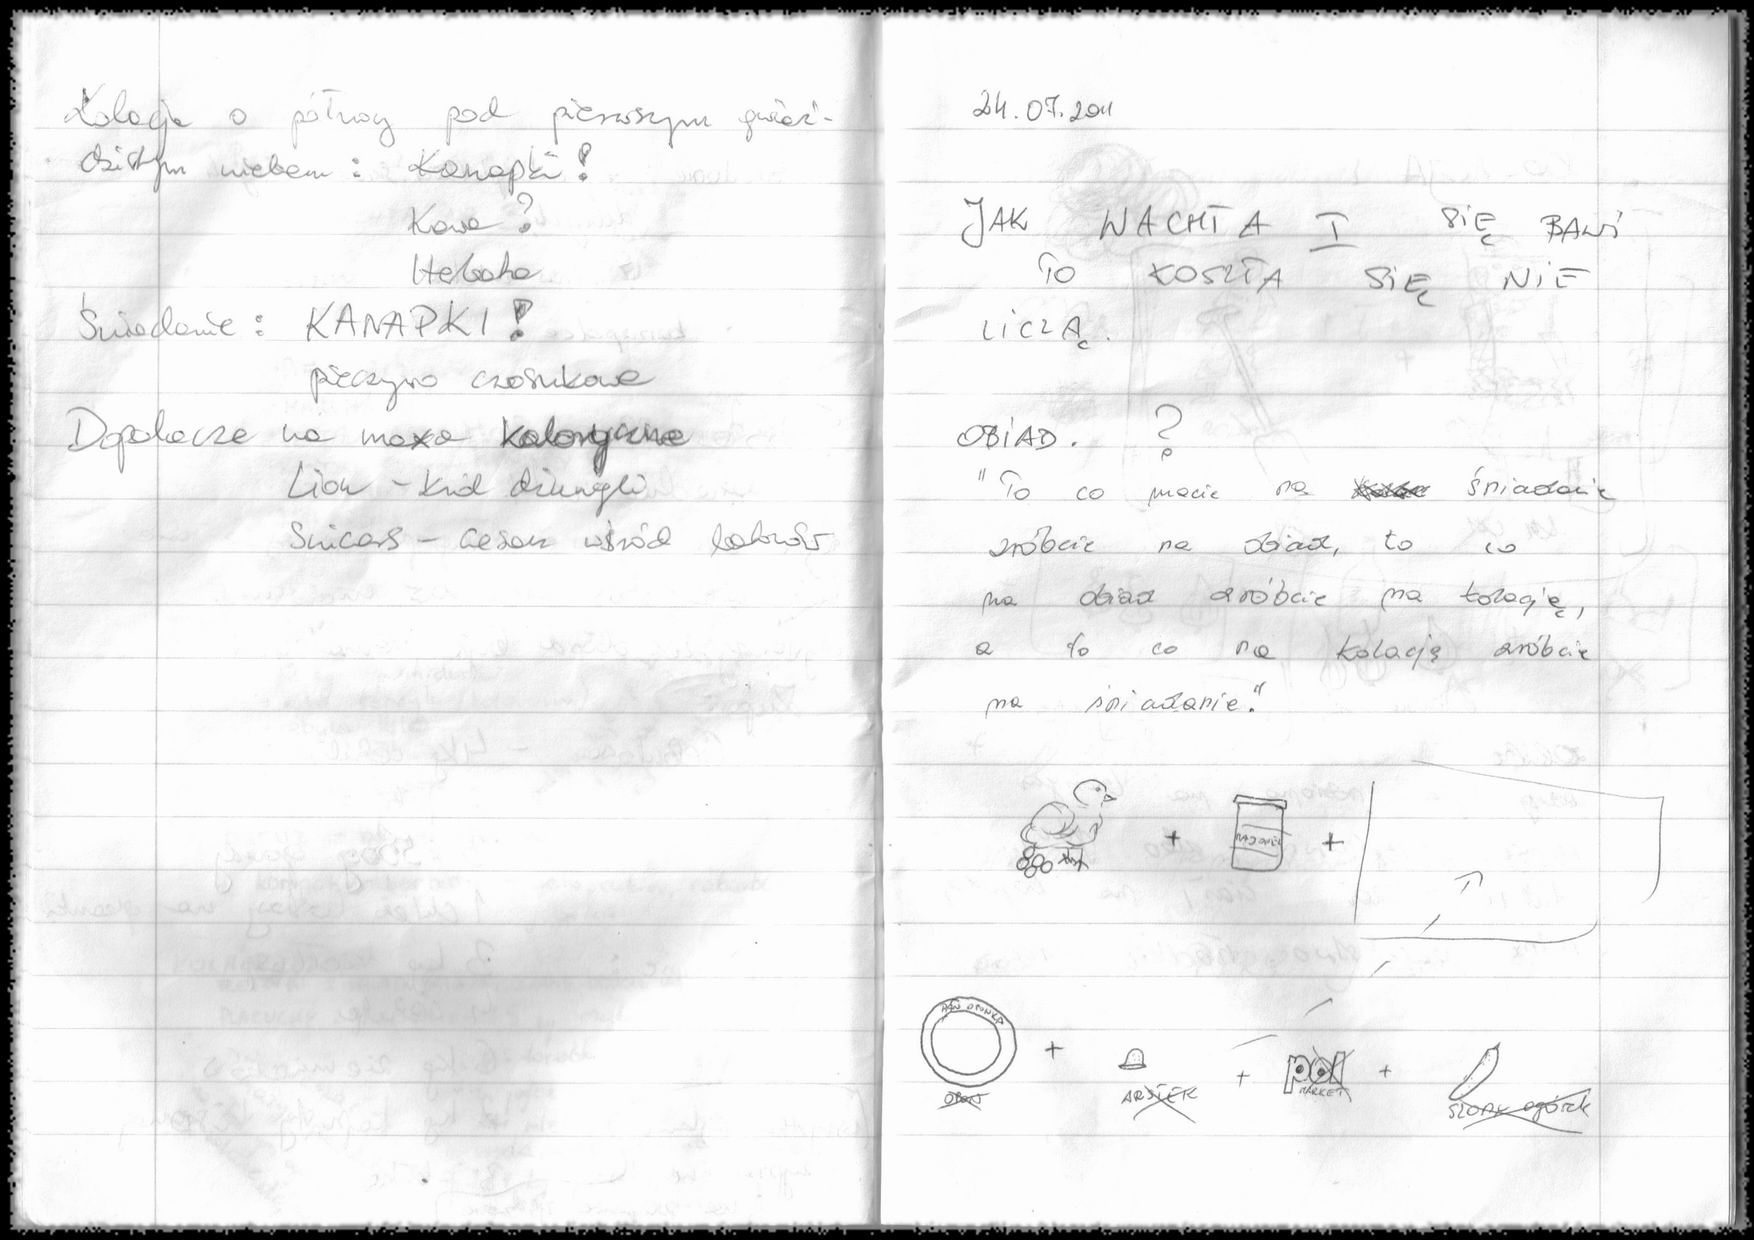 Kolacja o północy pod pierwszym gwieź-
dzistym niebem : Kanapki!
Kawa?
Herbata
Śniadanie : KANAPKI !
pieczywo czosnkowe
Dopalacze na maxa kaloryczne
Lion - król dżungli
Snicers - cesarz wśród batonów
24.07.2011
JAK WACHTA I SIĘ BAWI
TO KOSZTA SIĘ NIE
LICZĄ.
OBIAD. ?
"To co macie na śniadanie
zróbcie na obiad, to co
na obiad zróbcie na kolację,
a to co na kolację zróbcie
na śniadanie."
MAJONEZ
+ +
OPONKA
+ + +
pol
MARKET
OPON
ogórek